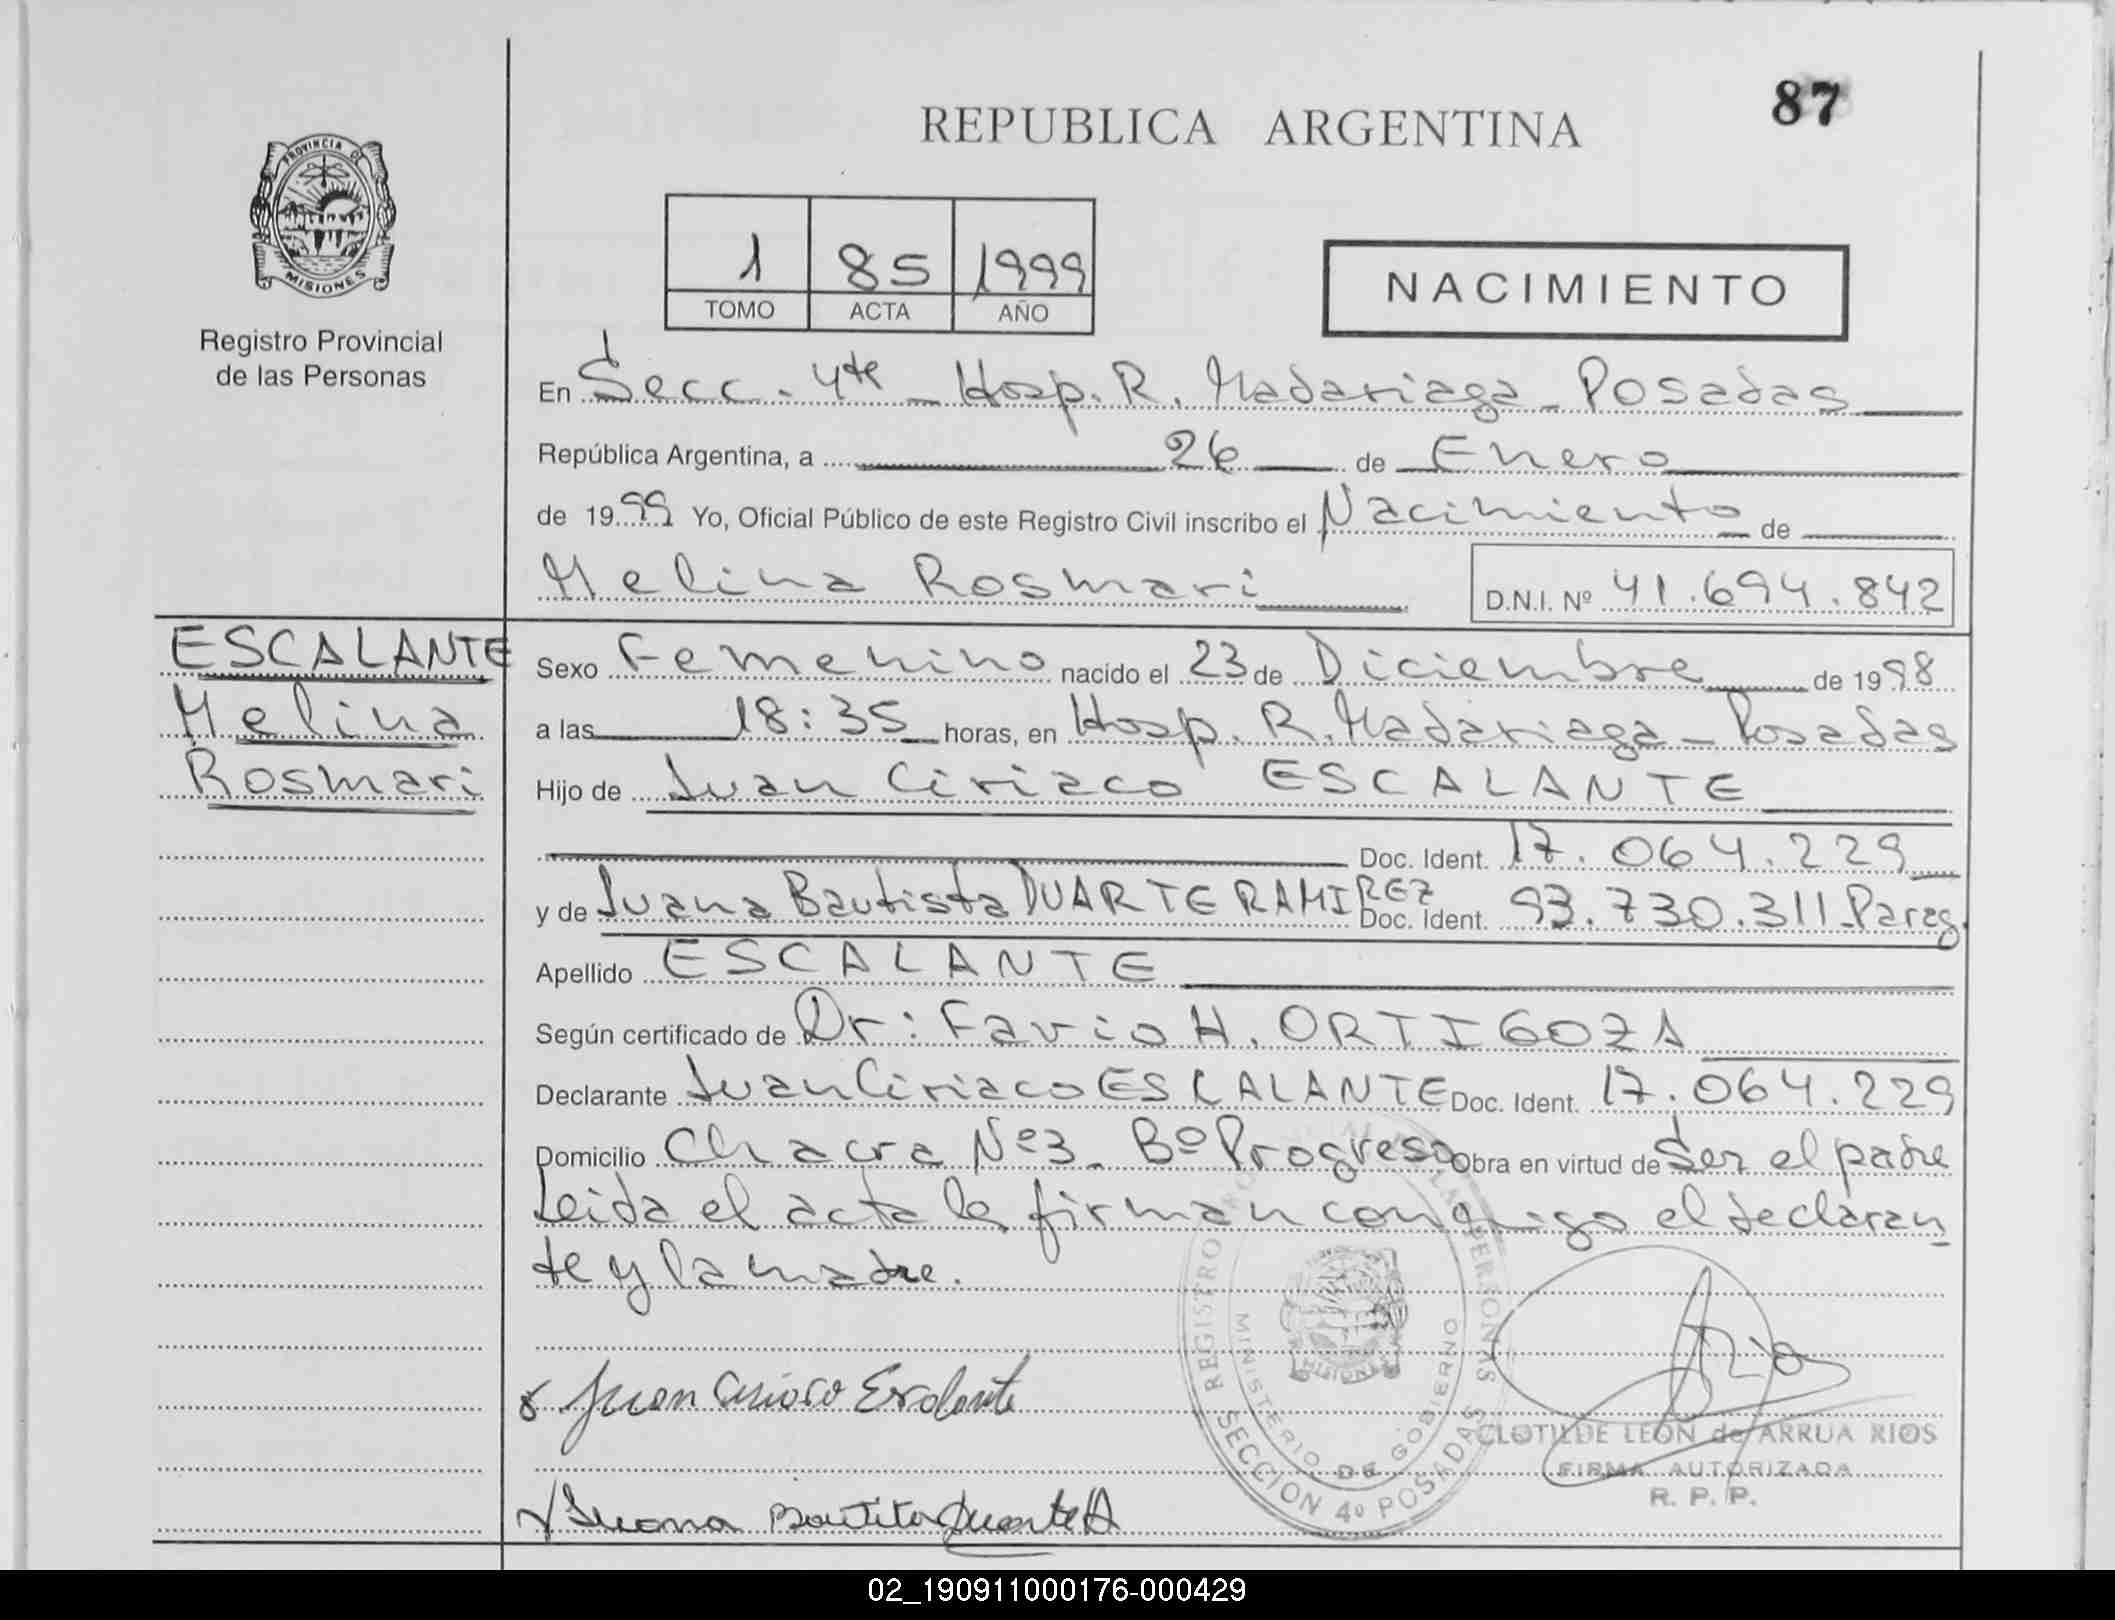 87
REPUBLICA ARGENTINA
PROVINCIA DE
MISIONES
Registro Provincial
de las Personas
1 85 1999
TOMO ACTA AÑO
NACIMIENTO
En Secc. 4ta - Hosp. R. Madariaga - Posadas
República Argentina, a 26 de Enero
de 1999 Yo, Oficial Público de este Registro Civil inscribo el Nacimiento de
Melina Rosmari D.N.I. Nº 41.694.842
ESCALANTE
Melina
Rosmari
Sexo Femenino nacido el 23 de Diciembre de 1998
a las 18:35 horas, en Hosp. R. Madariaga - Posadas
Hijo de Juan Ciriaco ESCALANTE
Doc. Ident. 17.064.229
y de Juana Bautista DUARTE RAMIREZ Doc. Ident. 93.730.311 Parag.
Apellido ESCALANTE
Según certificado de Dr: Favio H. ORTIGOZA
Declarante Juan Ciriaco ESCALANTE Doc. Ident. 17.064.229
Domicilio Chacra Nº3 - Bº Progreso Obra en virtud de Ser el padre
Leida el acta la firman conmigo el declaran
te y la madre.
Juan Ciriaco Escalante
Juana Bautista Duarte
REGISTRO PROVINCIAL DE LAS PERSONAS
MINISTERIO DE GOBIERNO
MISIONES
SECCION 4º POSADAS
Rios
CLOTILDE LEON de ARRUA RIOS
FIRMA AUTORIZADA
R. P. P.
02_190911000176-000429